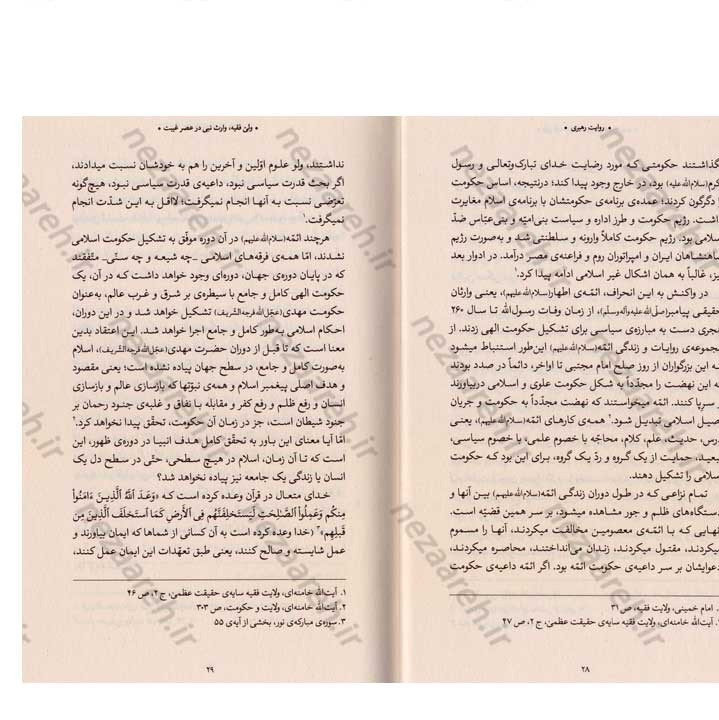 • روایت رهبری •
گذاشتند حکومتی که مورد رضایت خدای تبارک‌وتعالی و رسول
اکرم(سلام‌الله‌علیه) بود، در خارج وجود پیدا کند؛ درنتیجه، اساس حکومت
را دگرگون کردند؛ عمده‌ی برنامه‌ی حکومتشان با برنامه‌ی اسلام مغایرت
داشت. رژیم حکومت و طرز اداره و سیاست بنی‌امیّه و بنی‌عبّاس ضدّ
اسلامی بود. رژیم حکومت کاملاً وارونه و سلطنتی شد و به‌صورت رژیم
شاهنشاهان ایران و امپراتوران روم و فراعنه‌ی مصر درآمد. در ادوار بعد
نیز، غالباً به همان اشکال غیر اسلامی ادامه پیدا کرد.۱
در واکنش به این انحراف، ائمّه‌ی اطهار(سلام‌الله‌علیهم)، یعنی وارثان
حقیقی پیامبر(صلّی‌الله‌علیه‌وآله‌وسلّم)، از زمان وفات رسول‌الله تا سال ۲۶۰
هجری دست به مبارزه‌ی سیاسی برای تشکیل حکومت الهی زدند. از
مجموعه‌ی روایات و زندگی ائمّه(سلام‌الله‌علیهم) این‌طور استنباط میشود
که این بزرگواران از روز صلح امام مجتبی تا اواخر، دائماً در صدد بودند
که این نهضت را مجدّداً به شکل حکومت علوی و اسلامی دربیاورند
و سرِپا کنند. ائمّه میخواستند که نهضت مجدّداً به حکومت و جریان
اصیل اسلامی تبدیل شود.۲ همه‌ی کارهای ائمّه(سلام‌الله‌علیهم)، یعنی
درس، حدیث، علم، کلام، محاجّه با خصوم علمی، با خصوم سیاسی،
تبعید، حمایت از یک گروه و ردّ یک گروه، برای این بود که حکومت
اسلامی را تشکیل دهند.
تمام نزاعی که در طول دوران زندگی ائمّه(سلام‌الله‌علیهم) بین آنها و
دستگاه‌های ظلم و جور مشاهده میشود، بر سر همین قضیّه است.
آنهایی که با ائمّه‌ی معصومین مخالفت میکردند، آنها را مسموم
میکردند، مقتول میکردند، زندان می‌انداختند، محاصره میکردند،
دعوایشان بر سر داعیه‌ی حکومت ائمّه بود. اگر ائمّه داعیه‌ی حکومت
امام خمینی، ولایت فقیه، ص ۳۱
آیت‌الله خامنه‌ای، ولایت فقیه سایه‌ی حقیقت عظمیٰ، ج ۲، ص ۴۷
۲۸
• ولیّ فقیه، وارث نبی در عصر غیبت •
نداشتند، ولو علوم اوّلین و آخرین را هم به خودشان نسبت میدادند،
اگر بحث قدرت سیاسی نبود، داعیه‌ی قدرت سیاسی نبود، هیچ‌گونه
تعرّضی نسبت به آنها انجام نمیگرفت؛ لااقل به این شدّت انجام
نمیگرفت.۱
هرچند ائمّه(سلام‌الله‌علیهم) در آن دوره موفّق به تشکیل حکومت اسلامی
نشدند، امّا همه‌ی فرقه‌های اسلامی ـ چه شیعه و چه سنّی ـ متّفقند
که در پایان دوره‌ی جهان، دوره‌ای وجود خواهد داشت که در آن، یک
حکومت الهی کامل و جامع با سیطره‌ی بر شرق و غرب عالم، به‌عنوان
حکومت مهدی(عجّل‌الله‌فرجه‌الشّریف) تشکیل خواهد شد و در این دوران،
احکام اسلامی به‌طور کامل و جامع اجرا خواهد شد. این اعتقاد بدین
معنا است که تا قبل از دوران حضرت مهدی(عجّل‌الله‌فرجه‌الشّریف)، اسلام
به‌صورت کامل و جامع، در سطح جهان پیاده نشده است؛ یعنی مقصود
و هدف اصلی پیغمبر اسلام و همه‌ی نبوّتها که بازسازی عالم و بازسازی
انسان و رفع ظلم و رفع کفر و مقابله با نفاق و غلبه‌ی جنود رحمان بر
جنود شیطان است، جز در زمان آن حکومت، تحقّق پیدا نخواهد کرد.۲
امّا آیا معنای این باور به تحقّق کامل هدف انبیا در دوره‌ی ظهور، این
است که تا آن زمان، اسلام در هیچ سطحی، حتّی در سطح دل یک
انسان یا زندگی یک جامعه نیز پیاده نخواهد شد؟
خدای متعال در قرآن وعده کرده است که «وَعَدَ اللّٰهُ الَّذِینَ ءَامَنُواْ
مِنکُم وَعَمِلُواْ الصّٰلِحٰتِ لَیَستَخلِفَنَّهُم فِی الأَرضِ کَمَا استَخلَفَ الَّذِینَ مِن
قَبلِهِم»۳ (خدا وعده کرده است به آن کسانی از شماها که ایمان بیاورند و
عمل شایسته و صالح کنند، یعنی طبق تعهّدات این ایمان عمل کنند،
۱. آیت‌الله خامنه‌ای، ولایت فقیه سایه‌ی حقیقت عظمیٰ، ج ۲، ص ۴۶
۲. آیت‌الله خامنه‌ای، ولایت و حکومت، ص ۳۰۳
۳. سوره‌ی مبارکه‌ی نور، بخشی از آیه‌ی ۵۵
۲۹
nezaareh.ir